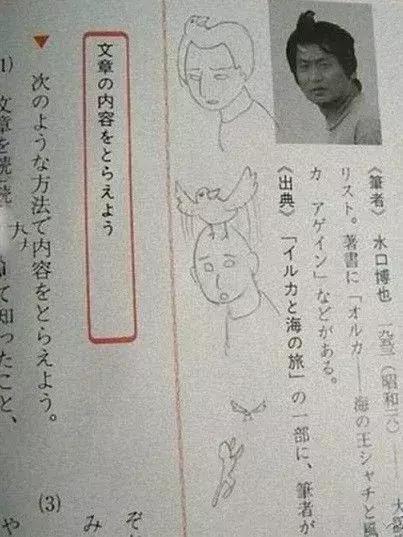 《筆者》 水口博也 (昭和
リスト。著書に「オルカ――海の王シャチと風
カ アゲイン」などがある。
《出典》「イルカと海の旅」の一部に、筆者が
文章の内容をとらえよう
▼ 次のような方法で内容をとらえよう。
1) 文章を て知ったこと、
ぞ
み
(3)
や